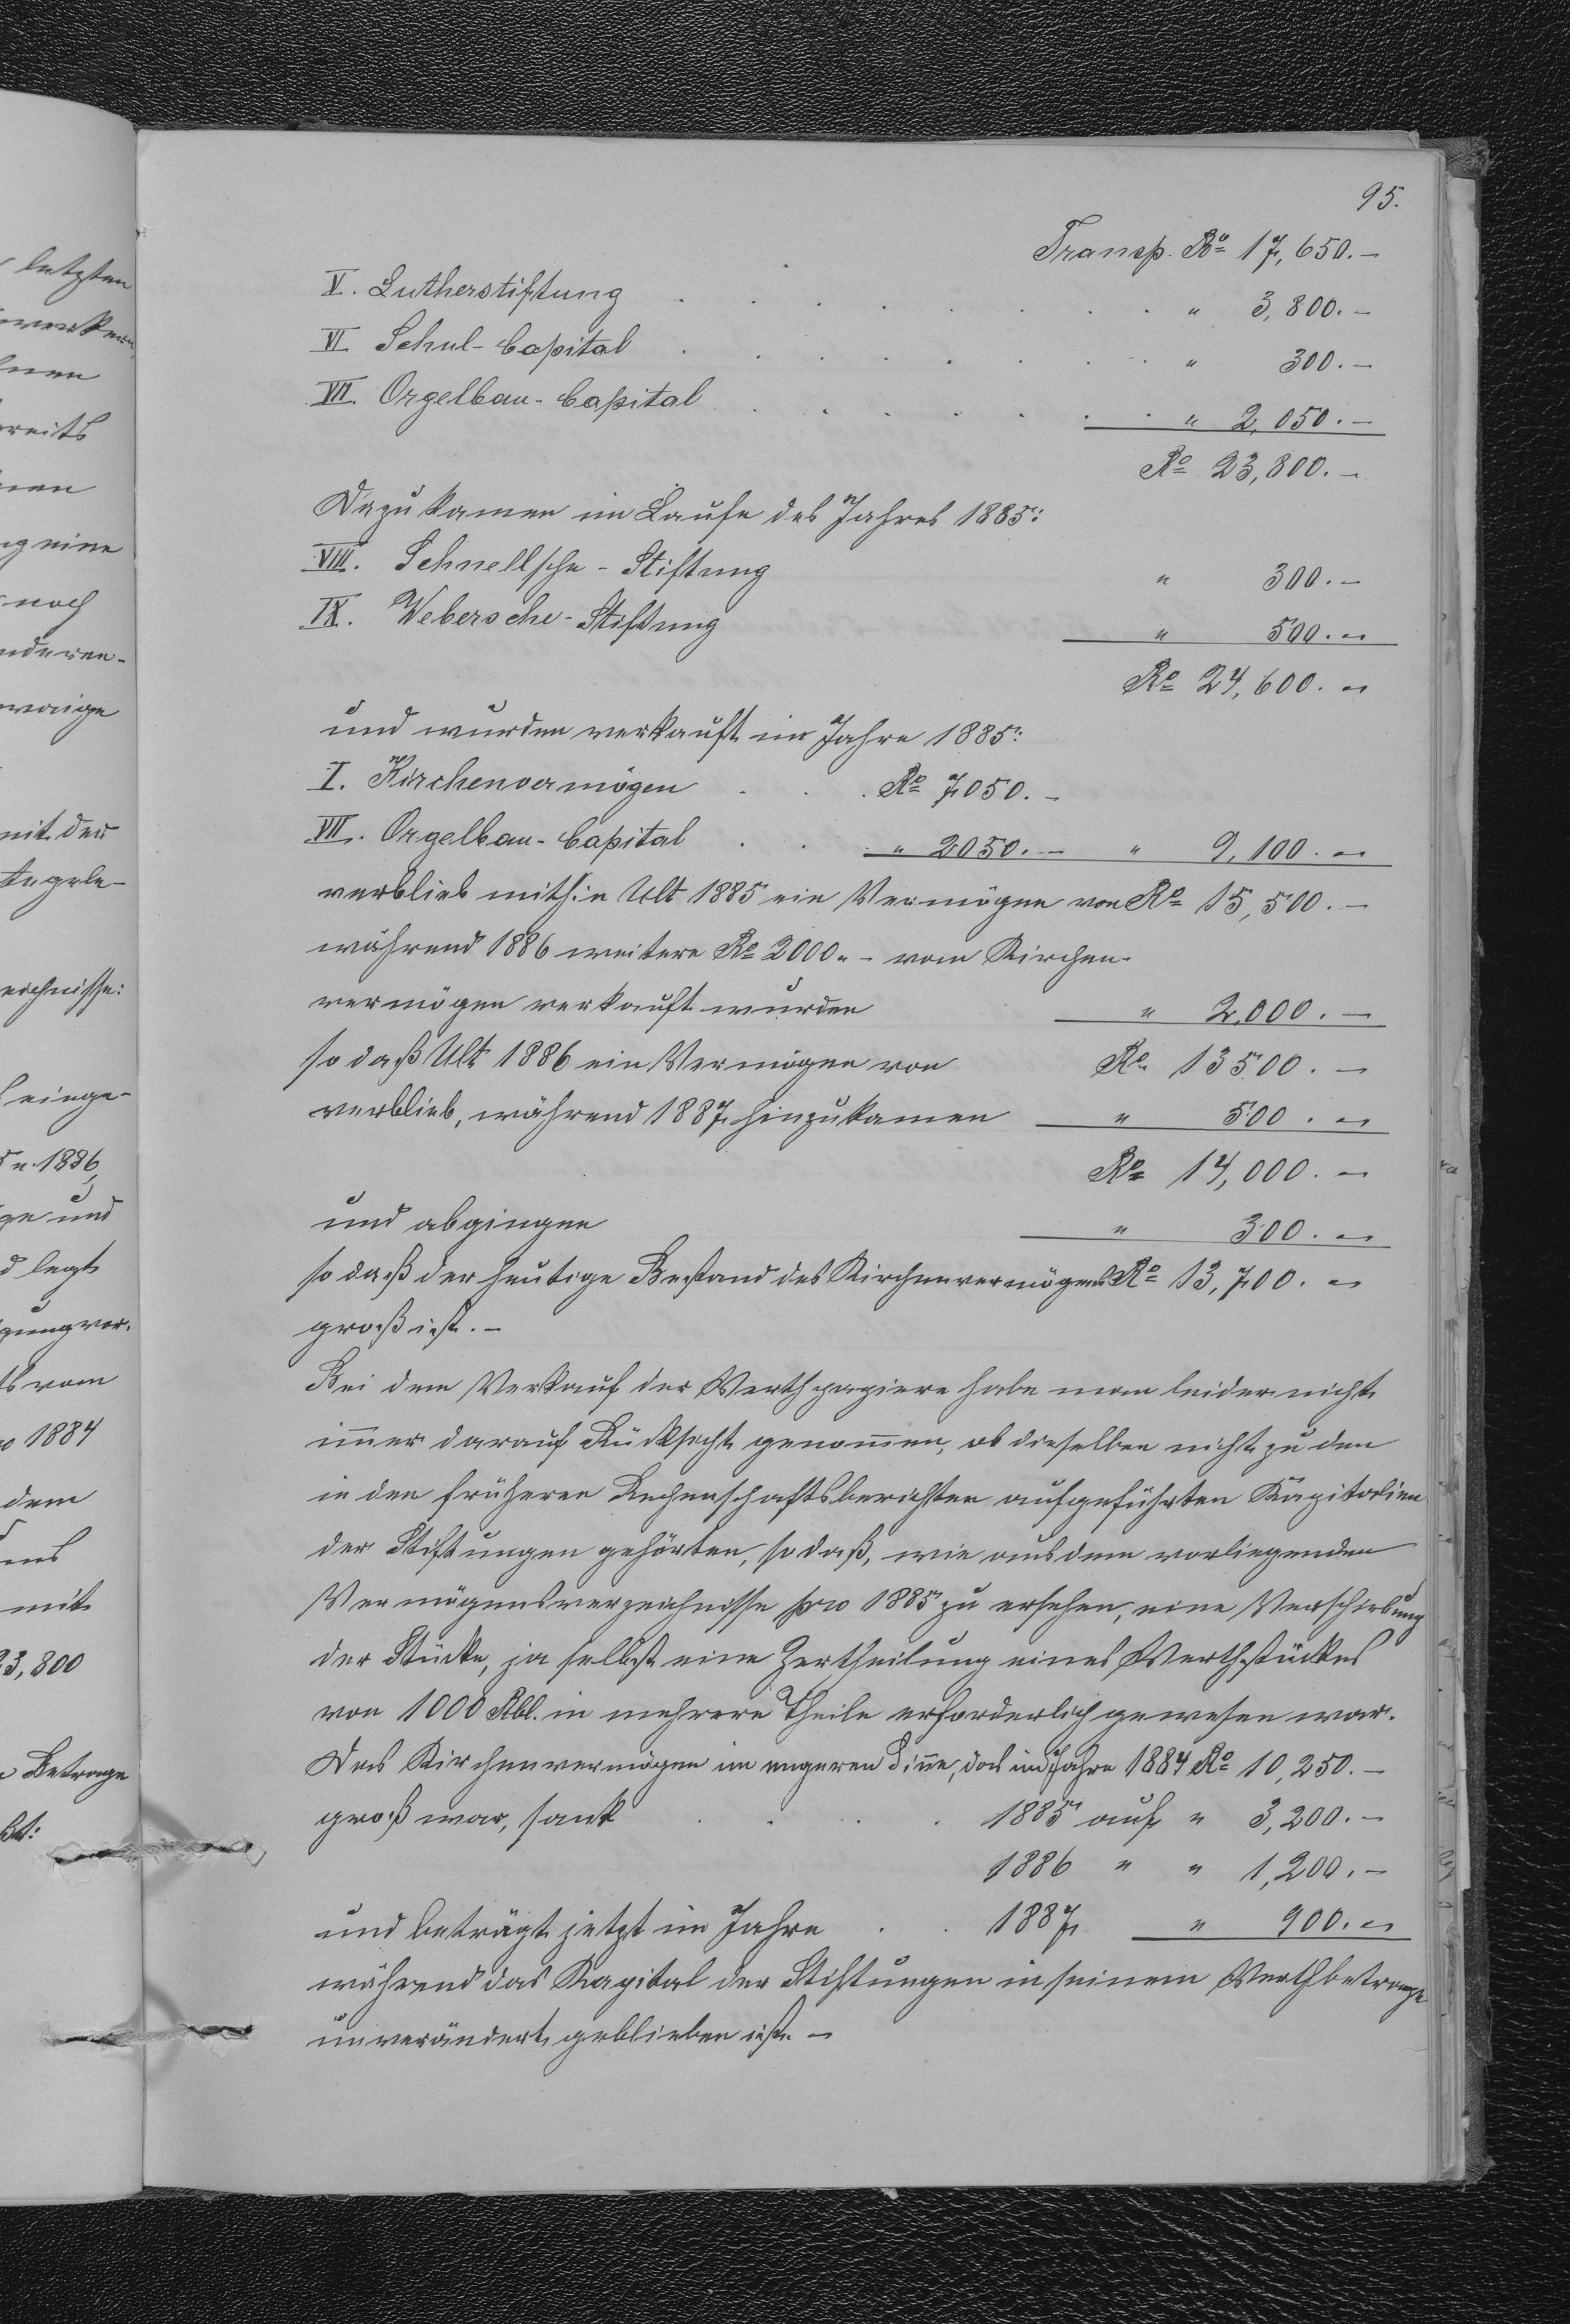 95.
Transp. Ro 17,650.–
V. Lutherstiftung . . . . . . . . " 3,800.–
VI Schul-Capital . . . . . . . . " 300.–
VII. Orgelbau-Capital . . . . . . . " 2,050.–
Ro 23,800.–
Dazu kamen im Laufe des Jahres 1885:
VIII. Schnellsche-Stiftung " 300.–
IX. Webersche-Stiftung " 500.–
Ro 24,600.–
und wurden verkauft im Jahre 1885:
I. Kirchenvermögen . . . Ro 7050.–
VII. Orgelbau-Capital . . . " 2050.– " 9,100.–
verblieb mithin Ult 1885 ein Vermögen von Ro 15,500.–
während 1886 weitere Ro 2000.– vom Kirchen-
vermögen verkauft wurden " 2,000.–
so daß Ult 1886 ein Vermögen von Ro 13500.–
verblieb, während 1887 hinzukamen " 500.–
Ro 14,000.–
und abgingen " 300.–
so daß der heutige Bestand des Kirchenvermögens Ro 13,700.–
groß ist.–
Bei dem Verkauf der Werthpapiere habe man leider nicht
immer darauf Rücksicht genommen, ob dieselben nicht zu den
in den früheren Rechenschaftsberichten aufgeführten Kapitalien
der Stiftungen gehörten, so daß, wie aus dem vorliegenden
Vermögensverzeichnisse pro 1885 zu ersehen, eine Verschiebung
der Stücke, ja selbst eine Zertheilung eines Werthstückes
von 1000 Rbl. in mehrere Theile erforderlich gewesen war.
Das Kirchenvermögen im engeren Sinne, das im Jahre 1884 Ro 10,250.–
groß war, sank . . . . 1885 auf " 3,200.–
1886 " " 1,200.–
und beträgt jetzt im Jahre . . 1887 " 900.–
während das Kapital der Stiftungen in seinem Werthbetrage
unverändert geblieben ist.–
letzten
nen
ereits
nen
eine
noch
anderen-
mit der
eichnisse:
einge-
1886,
und
legt
vor.
vom
1884
dem
mit
23,800
Betrage